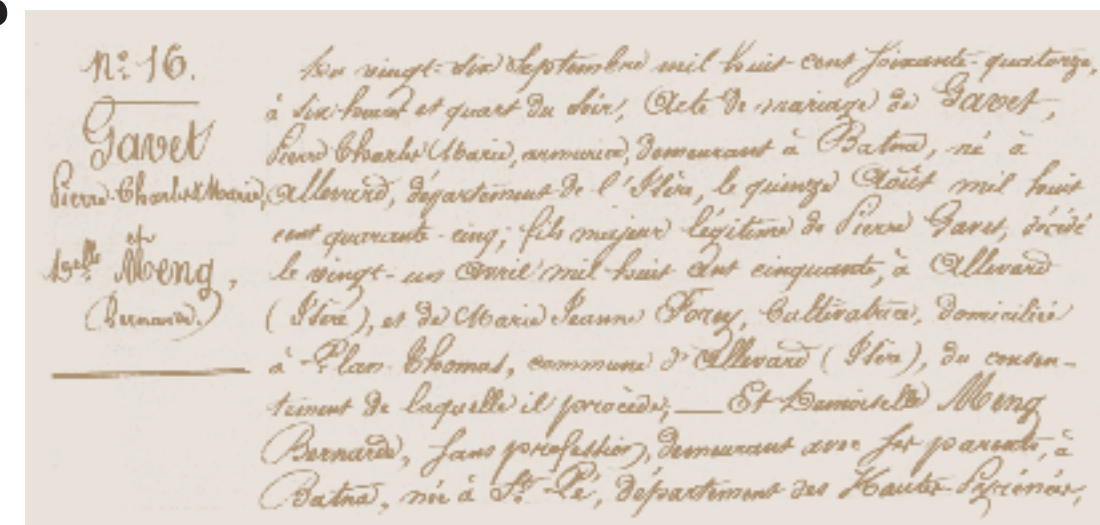 N.° 16.
Gavet
Pierre Charles Marie,
et
Dselle Meng,
Bernarde.
Du vingt-dix Septembre mil huit cent soixante-quatorze,
à six heures et quart du soir, Acte de mariage de Gavet,
Pierre Charles Marie, armurier, demeurant à Batna, né à
Allevard, département de l'Isère, le quinze Août mil huit
cent quarante-cinq; fils majeur légitime de Pierre Gavet, décédé
le vingt-un Avril mil huit cent cinquante, à Allevard
(Isère), et de Marie Jeanne Forey, Cultivatrice, domiciliée
à Plan Thomas, commune d'Allevard (Isère), du consen-
tement de laquelle il procède; — Et Demoiselle Meng
Bernarde, sans profession, demeurant avec ses parents, à
Batna, née à St-Pé, département des Hautes-Pyrénées,